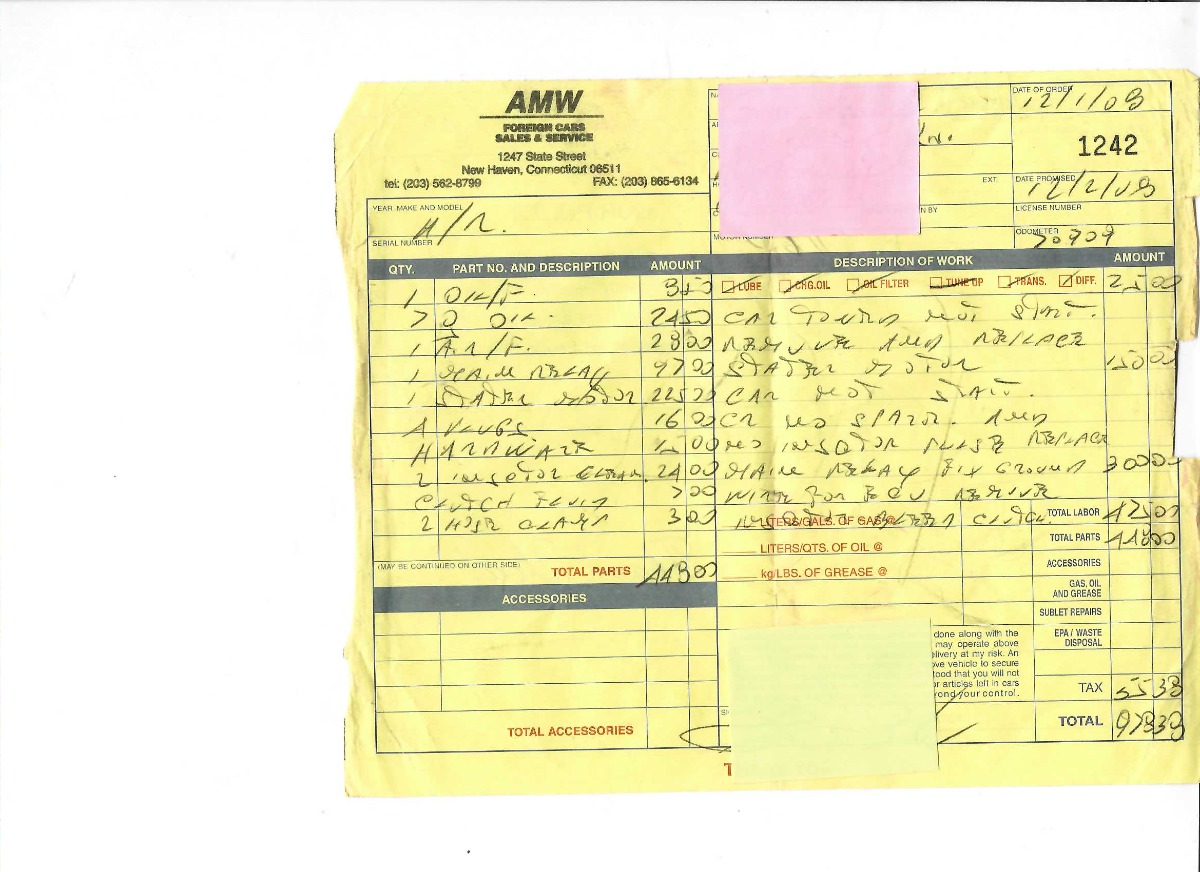 AMW
FOREIGN CARS
SALES & SERVICE
1247 State Street
New Haven, Connecticut 06511
tel: (203) 562-8799 FAX: (203) 865-6134
DATE OF ORDER
12/1/08
1242
EXT.
DATE PROMISED
12/2/08
YEAR, MAKE AND MODEL
LICENSE NUMBER
SERIAL NUMBER
MOTOR NUMBER
ODOMETER
QTY. PART NO. AND DESCRIPTION AMOUNT DESCRIPTION OF WORK AMOUNT
LUBE CHG.OIL OIL FILTER TUNE UP TRANS. DIFF. 25 00
1 OIL/F. 8 50
OIL. 24 50 CAR TURNS NOT START.
1 AIR/F. 28 00 REMOVE AND REPLACE
1 MAIN RELAY 97 00 STATER MOTOR 150 00
1 STATER MOTOR 225 00 CAR NOT START.
4 PLUGS 16 00 NO SPARK AND
HARDWARE 15 00 NO REPLACE
2 24 00 MAIN RELAY FIX GROUND 300 00
CLUTCH FLUID 7 00 WIRE FOR ECU REMOVE
2 HOSE CLAMP 3 00 CLUTCH
LITERS/GALS. OF GAS @
TOTAL LABOR 475 00
LITERS/QTS. OF OIL @
TOTAL PARTS 448 00
(MAY BE CONTINUED ON OTHER SIDE)
TOTAL PARTS 448 00
kg/LBS. OF GREASE @
ACCESSORIES
GAS, OIL
AND GREASE
ACCESSORIES
SUBLET REPAIRS
EPA / WASTE
DISPOSAL
done along with the
may operate above
elivery at my risk. An
ove vehicle to secure
tood that you will not
or articles left in cars
yond your control.
TAX 55 38
TOTAL 978 38
TOTAL ACCESSORIES